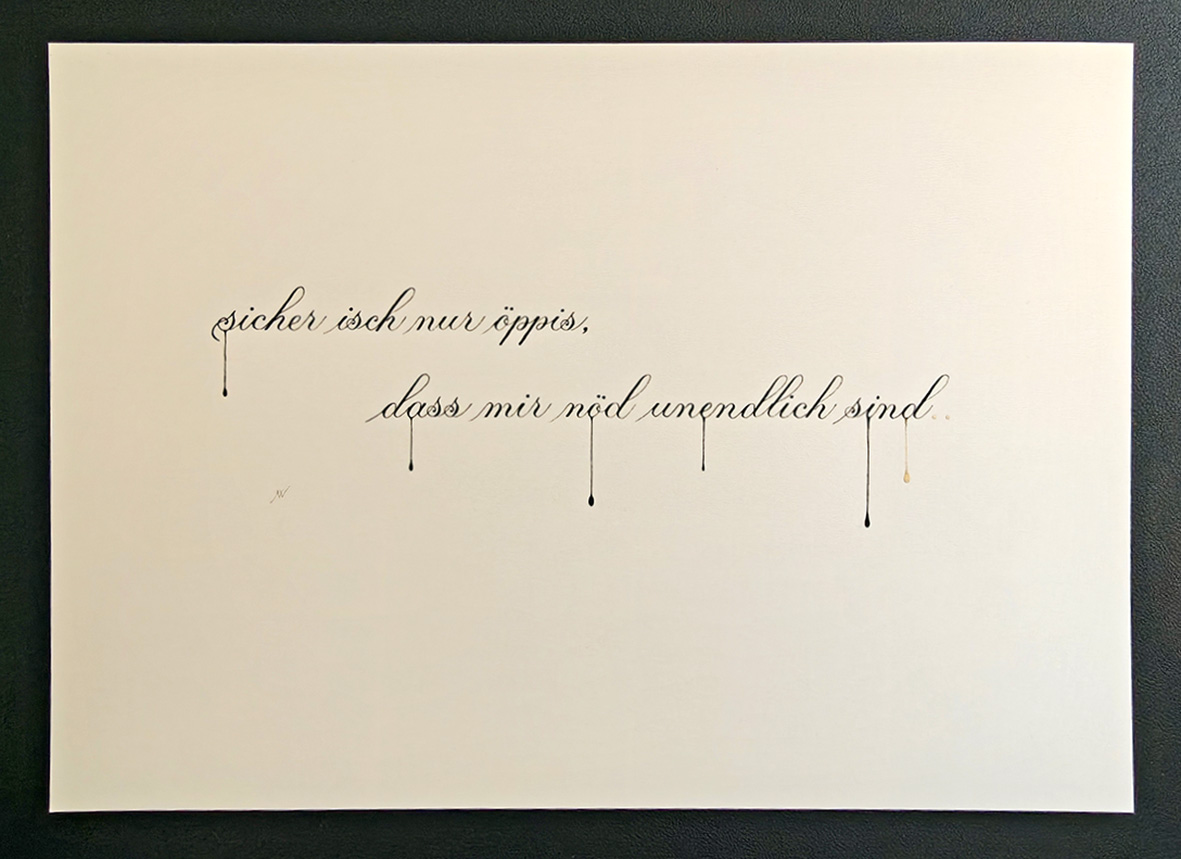 sicher isch nur öppis,
dass mir nöd unendlich sind..